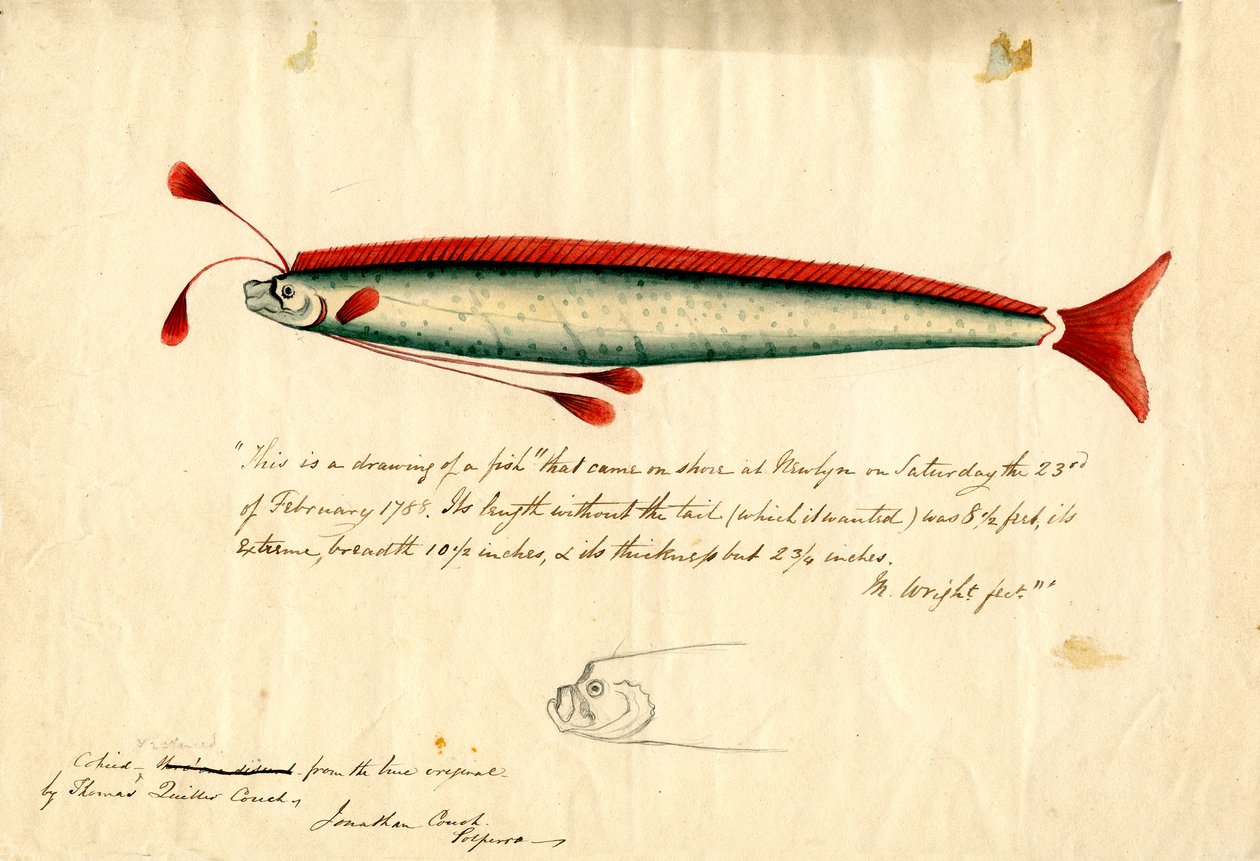 "This is a drawing of a fish" that came on shore at Newlyn on Saturday the 23rd
of February 1788. Its length without the tail (which it wanted) was 8 1/2 feet, its
extreme, breadth 10 1/2 inches, & its thickness but 2 3/4 inches.
M. Wright fect."
& reduced
Copied - from the true original
by Thomas Quiller Couch,
Jonathan Couch.
Polperro